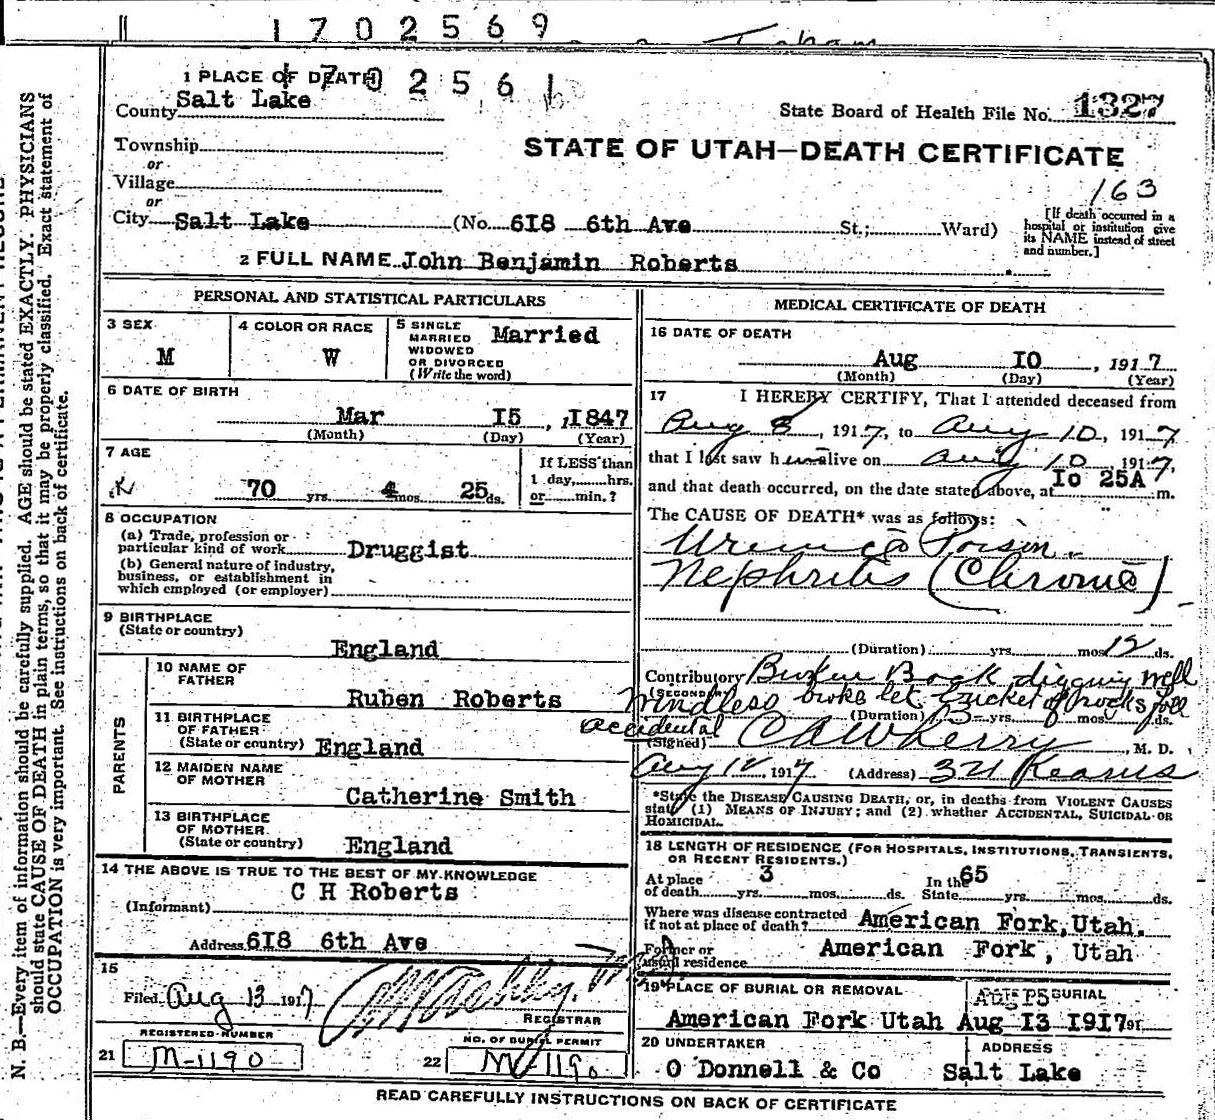 1702569
1 PLACE OF DEATH 1702561
County Salt Lake
State Board of Health File No. 1327
Township
STATE OF UTAH—DEATH CERTIFICATE
or
Village
163
or
City Salt Lake (No. 6I8 6th Ave St.; Ward)
[If death occurred in a
hospital or institution give
its NAME instead of street
and number.]
2 FULL NAME John Benjamin Roberts
PERSONAL AND STATISTICAL PARTICULARS
3 SEX
M
4 COLOR OR RACE
W
5 SINGLE
MARRIED
WIDOWED
OR DIVORCED
(Write the word)
Married
6 DATE OF BIRTH
Mar I5, I847
(Month) (Day) (Year)
7 AGE
70 yrs. 4 mos. 25 ds.
If LESS than
1 day, hrs.
or min.?
8 OCCUPATION
(a) Trade, profession or
particular kind of work Druggist
(b) General nature of industry,
business, or establishment in
which employed (or employer)
9 BIRTHPLACE
(State or country)
England
PARENTS
10 NAME OF
FATHER
Ruben Roberts
11 BIRTHPLACE
OF FATHER
(State or country) England
12 MAIDEN NAME
OF MOTHER
Catherine Smith
13 BIRTHPLACE
OF MOTHER
(State or country) England
14 THE ABOVE IS TRUE TO THE BEST OF MY KNOWLEDGE
C H Roberts
(Informant)
Address 6I8 6th Ave
15
Filed Aug 13 1917
REGISTRAR
REGISTERED NUMBER
21 M-1190
NO. OF BURIAL PERMIT
22 M-1190
MEDICAL CERTIFICATE OF DEATH
16 DATE OF DEATH
Aug IO, 1917
(Month) (Day) (Year)
17 I HEREBY CERTIFY, That I attended deceased from
Aug 8, 1917, to Aug 10, 1917
that I last saw h alive on Aug 10 1917,
and that death occurred, on the date stated above, at Io 25A m.
The CAUSE OF DEATH* was as follows:
Uremica Poison.
Nephritis (Chronic)
(Duration) yrs. mos. 12 ds.
Contributory Broken Back digging well
(SECONDARY) Windless broke let bucket of rocks fall
(Duration) yrs. mos. ds.
accidental
(Signed) M. D.
Aug 12, 1917 (Address) 321 Kearns
*State the DISEASE CAUSING DEATH, or, in deaths from VIOLENT CAUSES
state (1) MEANS OF INJURY; and (2) whether ACCIDENTAL, SUICIDAL OR
HOMICIDAL.
18 LENGTH OF RESIDENCE (FOR HOSPITALS, INSTITUTIONS, TRANSIENTS,
OR RECENT RESIDENTS.)
At place
of death 3 yrs. mos. ds.
In the
State 65 yrs. mos. ds.
Where was disease contracted
if not at place of death? American Fork, Utah.
Former or
usual residence American Fork, Utah
19 PLACE OF BURIAL OR REMOVAL
BURIAL
American Fork Utah Aug I3 I9I7
20 UNDERTAKER
ADDRESS
O Donnell & Co Salt Lake
READ CAREFULLY INSTRUCTIONS ON BACK OF CERTIFICATE
N. B.—Every item of information should be carefully supplied. AGE should be stated EXACTLY. PHYSICIANS
should state CAUSE OF DEATH in plain terms, so that it may be properly classified. Exact statement of
OCCUPATION is very important. See instructions on back of certificate.